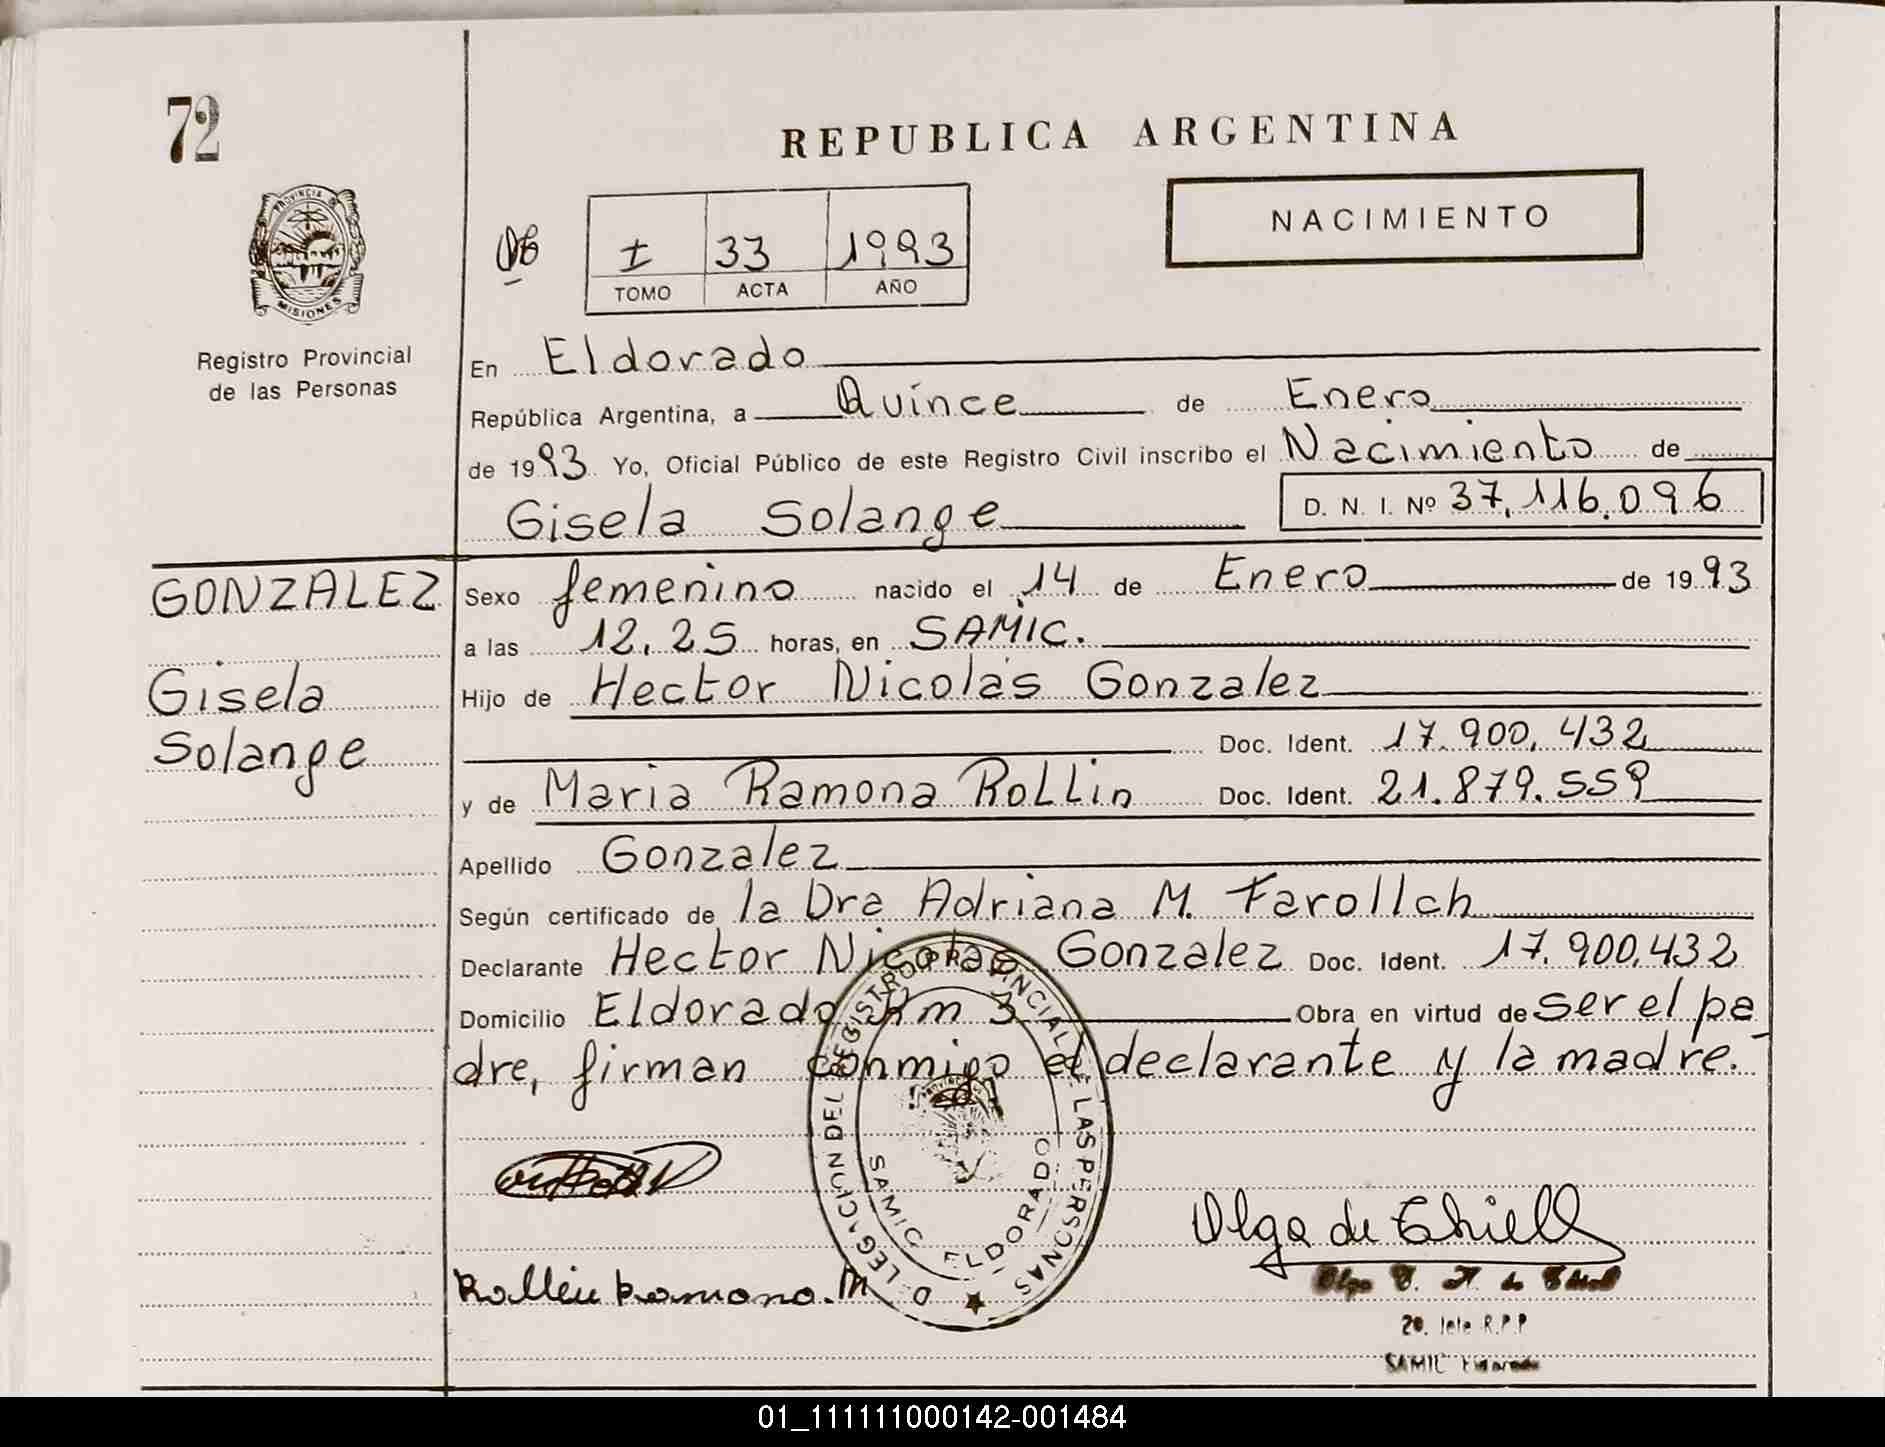 72
REPUBLICA ARGENTINA
PROVINCIA DE
MISIONES
Registro Provincial
de las Personas
I 33 1993
TOMO ACTA AÑO
NACIMIENTO
En Eldorado
República Argentina, a Quince de Enero
de 1993 Yo, Oficial Público de este Registro Civil inscribo el Nacimiento de
Gisela Solange D. N. I. Nº 37.116.096
GONZALEZ
Gisela
Solange
Sexo femenino nacido el 14 de Enero de 1993
a las 12.25 horas, en SAMIC.
Hijo de Hector Nicolás Gonzalez
Doc. Ident. 17.900.432
y de Maria Ramona Rollin Doc. Ident. 21.879.559
Apellido Gonzalez
Según certificado de la Dra Adriana M. Farollch
Declarante Hector Nicolas Gonzalez Doc. Ident. 17.900.432
Domicilio Eldorado Km 3 Obra en virtud de ser el pa
dre, firman conmigo el declarante y la madre.-
DELEGACION DEL REGISTRO PROVINCIAL DE LAS PERSONAS
SAMIC ELDORADO
Olga de Thiell
Rollin Ramona. M
2º. Jefe R.P.P
SAMIC Eldorado
01_111111000142-001484